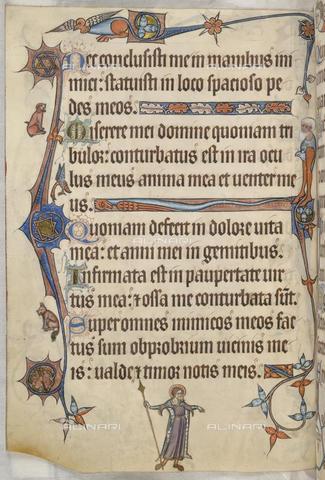 Nec conclusisti me in manibus ini
mici: statuisti in loco spacioso pe
des meos.
Miserere mei domine quoniam tri
bulor: conturbatus est in ira ocu
lus meus anima mea et uenter me
us.
Quoniam defecit in dolore uita
mea: et anni mei in gemitibus.
Infirmata est in paupertate uir
tus mea: ⁊ ossa mea conturbata sūt.
Super omnes inimicos meos fac
tus sum obprobrium uicinis me
is: ualde ⁊ timor notis meis.
ALINARI
ALINARI
ALINARI
ALINARI